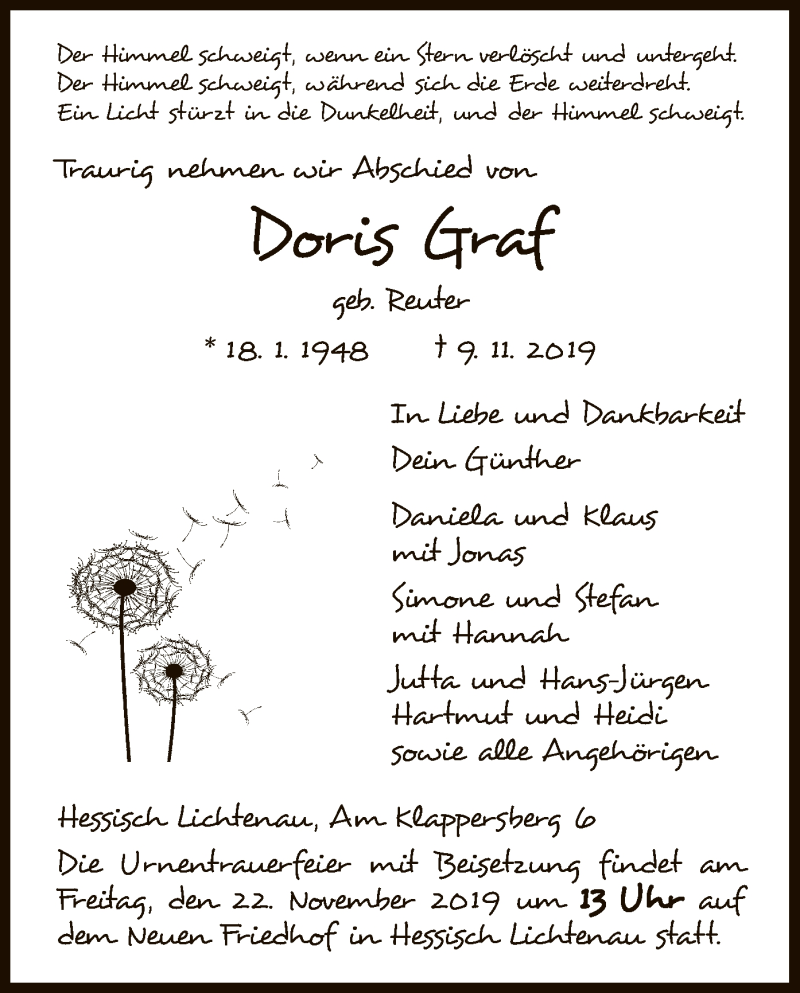 Der Himmel schweigt, wenn ein Stern verlöscht und untergeht.
Der Himmel schweigt, während sich die Erde weiterdreht.
Ein Licht stürzt in die Dunkelheit, und der Himmel schweigt.
Traurig nehmen wir Abschied von
Doris Graf
geb. Reuter
* 18. 1. 1948 † 9. 11. 2019
In Liebe und Dankbarkeit
Dein Günther
Daniela und Klaus
mit Jonas
Simone und Stefan
mit Hannah
Jutta und Hans-Jürgen
Hartmut und Heidi
sowie alle Angehörigen
Hessisch Lichtenau, Am Klappersberg 6
Die Urnentrauerfeier mit Beisetzung findet am
Freitag, den 22. November 2019 um 13 Uhr auf
dem Neuen Friedhof in Hessisch Lichtenau statt.